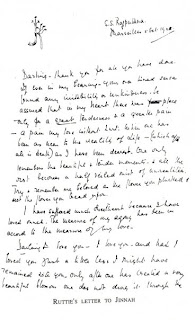 S.S. Rajputana
Marseilles 5 Oct 1928
Darling - thank you for all you have done.
If ever in my bearing your once tuned senses
found any irritability or unkindness - be
assured that in my heart there was place
only for a great tenderness & a greater pain
- a pain my love without hurt. When one has
been as near to the reality of Life - (which after
all is Death) as I have been dearest, one only
remembers the beautiful & tender moments - & all the
rest becomes a half veiled mist of unrealities.
Try & remember me beloved as the flower you plucked &
not the flower you tread upon.
I have suffered much sweetheart because I have
loved much. The measure of my agony has been in
accord to the measure of my love.
Darling I love you - I love you - and had I
loved you just a little less I might have
remained with you - only after one has created a very
beautiful blossom one does not drag it through the
RUTTIE'S LETTER TO JINNAH